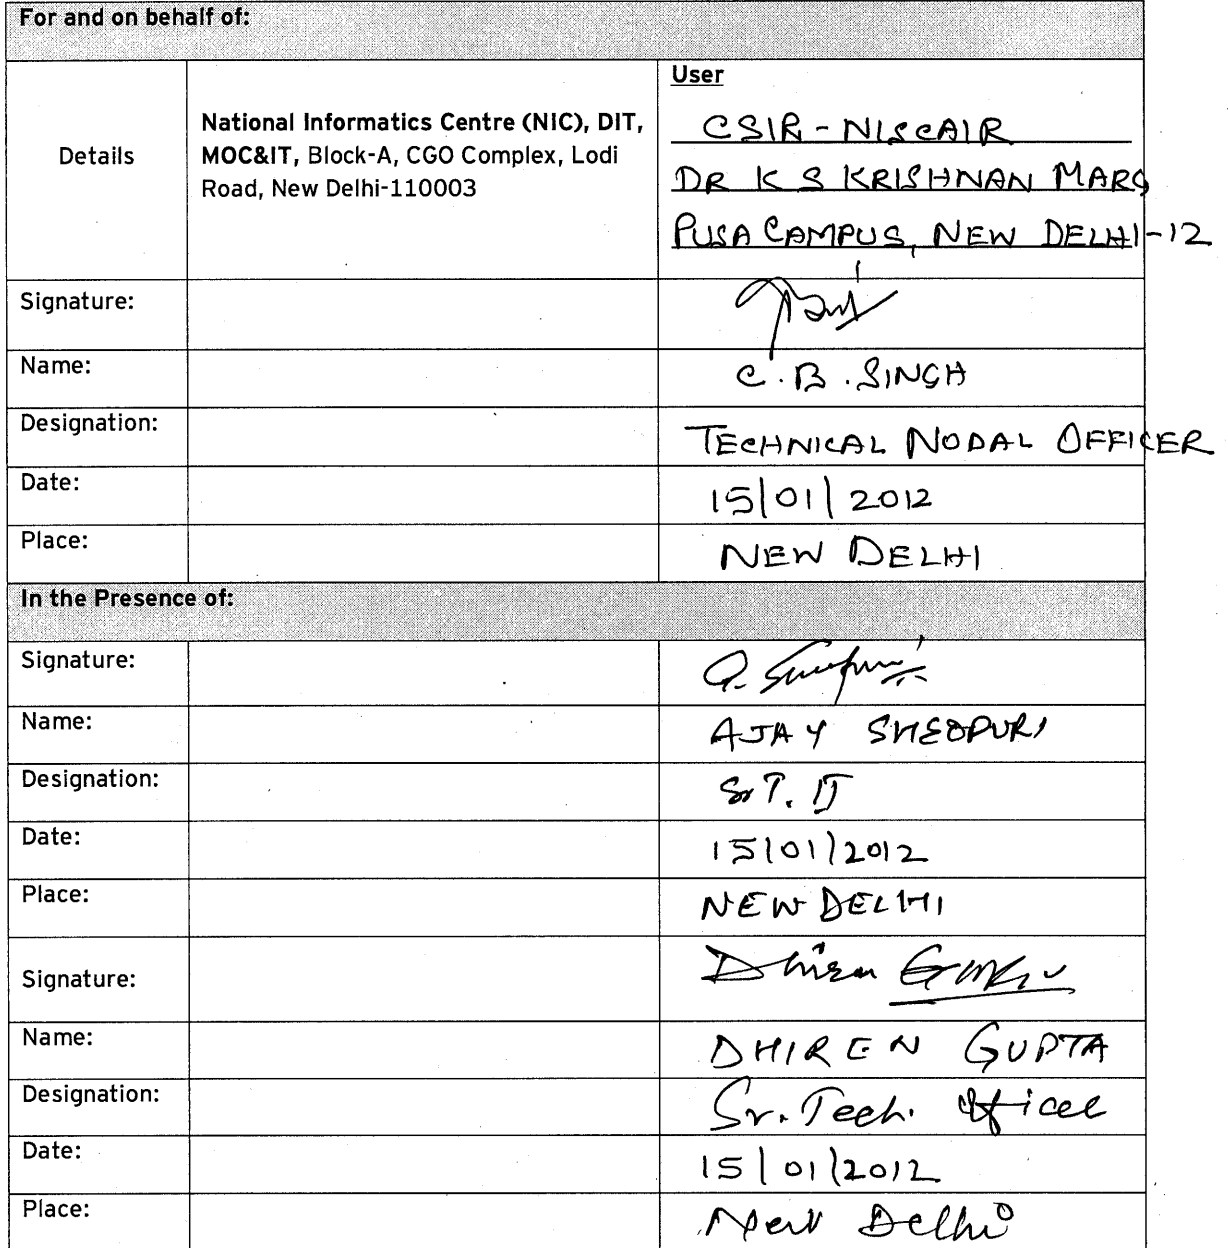 For and on behalf of:
Details
National Informatics Centre (NIC), DIT,
MOC&IT, Block-A, CGO Complex, Lodi
Road, New Delhi-110003
User
CSIR-NISCAIR
DR K S KRISHNAN MARG
PUSA CAMPUS, NEW DELHI-12
Signature:
Name: C.B. SINGH
Designation: TECHNICAL NODAL OFFICER
Date: 15/01/2012
Place: NEW DELHI
In the Presence of:
Signature:
Name: AJAY SHEOPURI
Designation:
Date: 15/01/2012
Place: NEW DELHI
Signature: Dhiren Gupta
Name: DHIREN GUPTA
Designation: Sr. Tech. Officer
Date: 15/01/2012
Place: New Delhi